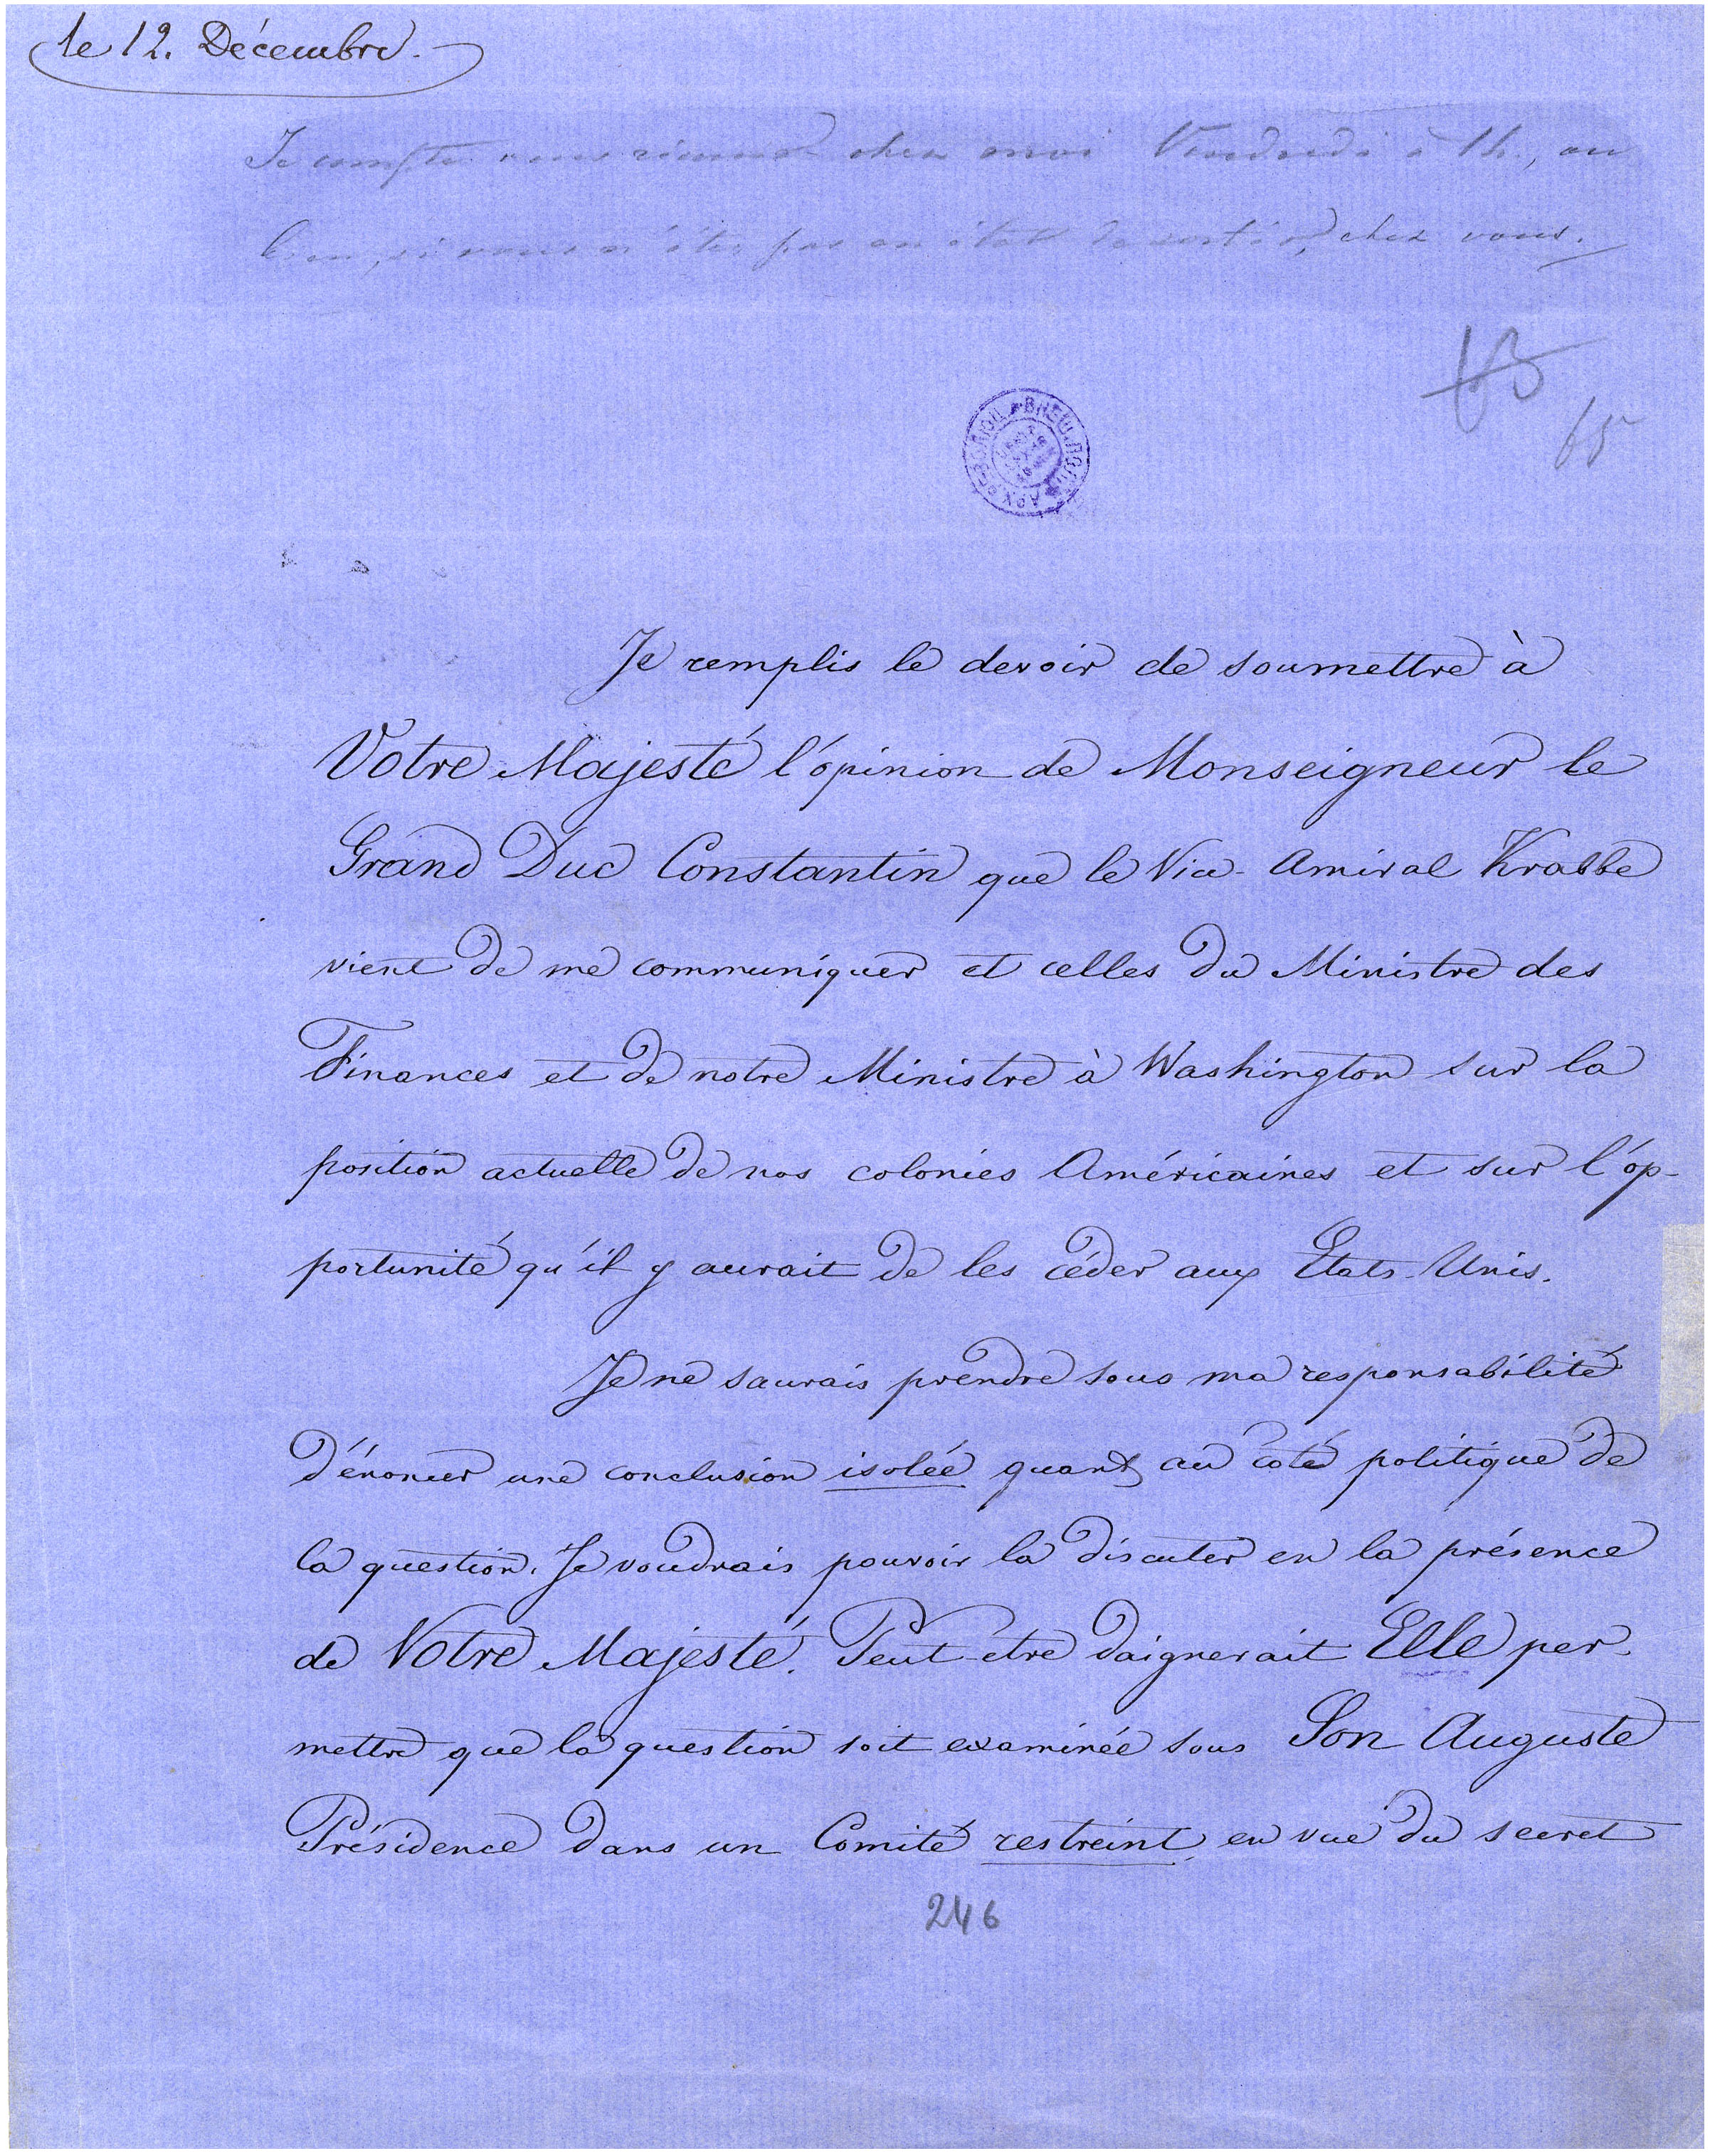 le 12. Décembre.
Je compte vous réunir chez moi Vendredi à 1 h., ou
bien, si vous n'êtes pas en état de sortir, chez vous.
65
Je remplis le devoir de soumettre à
Votre Majesté l'opinion de Monseigneur le
Grand Duc Constantin que le Vice-Amiral Krabbe
vient de me communiquer et celles du Ministre des
Finances et de notre Ministre à Washington sur la
position actuelle de nos colonies Américaines et sur l'op-
portunité qu'il y aurait de les céder aux Etats-Unis.
Je ne saurais prendre sous ma responsabilité
d'énoncer une conclusion isolée quant au côté politique de
la question. Je voudrais pouvoir la discuter en la présence
de Votre Majesté. Peut-etre daignerait Elle per-
mettre que la question soit examinée sous Son Auguste
Présidence dans un Comité restreint, en vue du secret
246